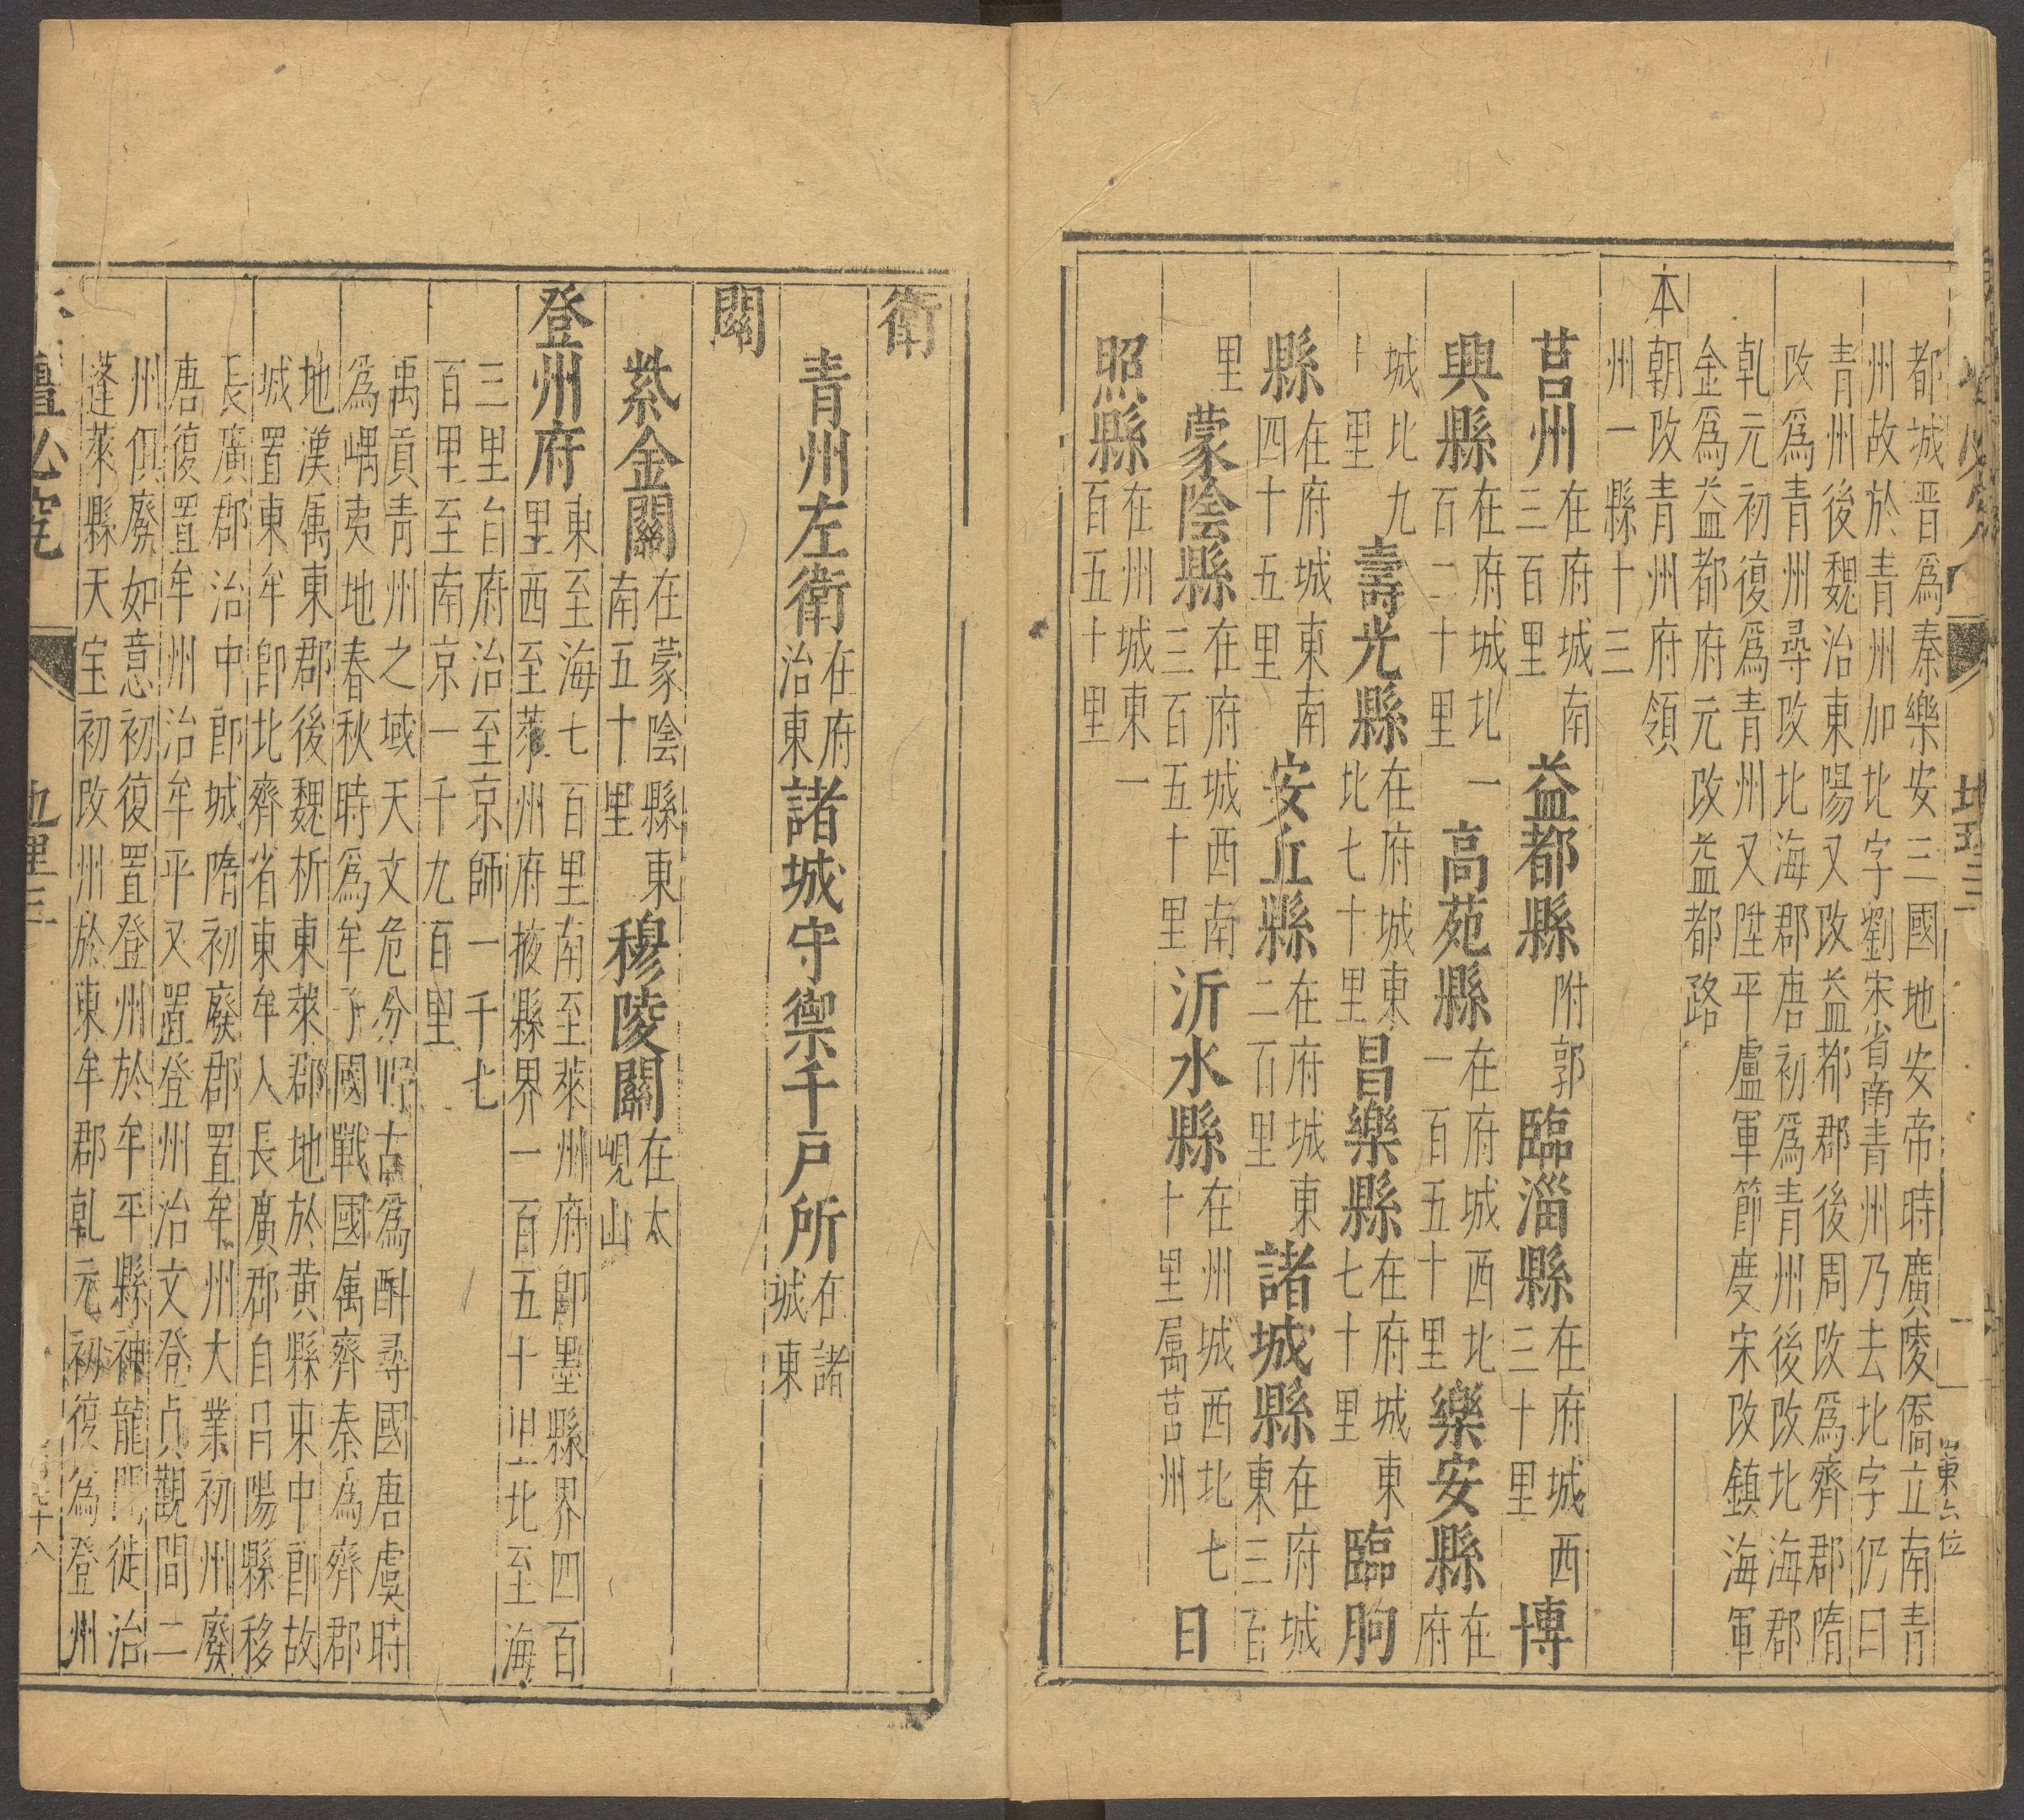 都城晋爲秦樂安三國地安帝時廣陵僑立南青
州故於青州加北字劉宋省南青州乃去北字仍曰
青州後魏治東陽又改益都郡後周改爲齊郡隋
改爲青州尋改北海郡唐初爲青州後改北海郡
乹元初復爲青州又陞平盧軍節度宋改鎮海軍
金爲益都府元改益都路
本朝改青州府領
州一縣十三
莒州在府城南三百里益都縣附郭臨淄縣在府城西三十里博
興縣在府城北一百二十里高苑縣在府城西北一百五十里樂安縣在府
城北九十里壽光縣在府城東北七十里昌樂縣在府城東七十里臨朐
縣在府城東南四十五里安丘縣在府城東二百里諸城縣在府城東三百
里蒙陰縣在府城西南三百五十里沂水縣在州城西北七十里属莒州日
照縣在州城東一百五十里
衛
青州左衛在府治東諸城守禦千戸所在諸城東
關
紫金關在蒙陰縣東南五十里穆陵關在太峴山
登州府東至海七百里南至萊州府即墨縣界四百里西至萊州府掖縣界一百五十里北至海
三里自府治至京師一千七百里至南京一千九百里
禹貢青州之域天文危分野古爲斟尋國唐虞時
爲嵎夷地春秋時爲牟子國戰國属齊秦爲齊郡
地漢属東郡後魏析東萊郡地於黄縣東中郎故
城置東牟郎北齊省東牟入長廣郡自昌陽縣移
長廣郡治中郎城隋初廢郡置牟州大業初州廢
唐復置牟州治牟平又置登州治文登貞觀間二
州俱廢如意初復置登州於牟平縣神龍間徙治
蓬萊縣天宝初改州於東牟郡乹元初復爲登州
壇必究
地理三
山東六位